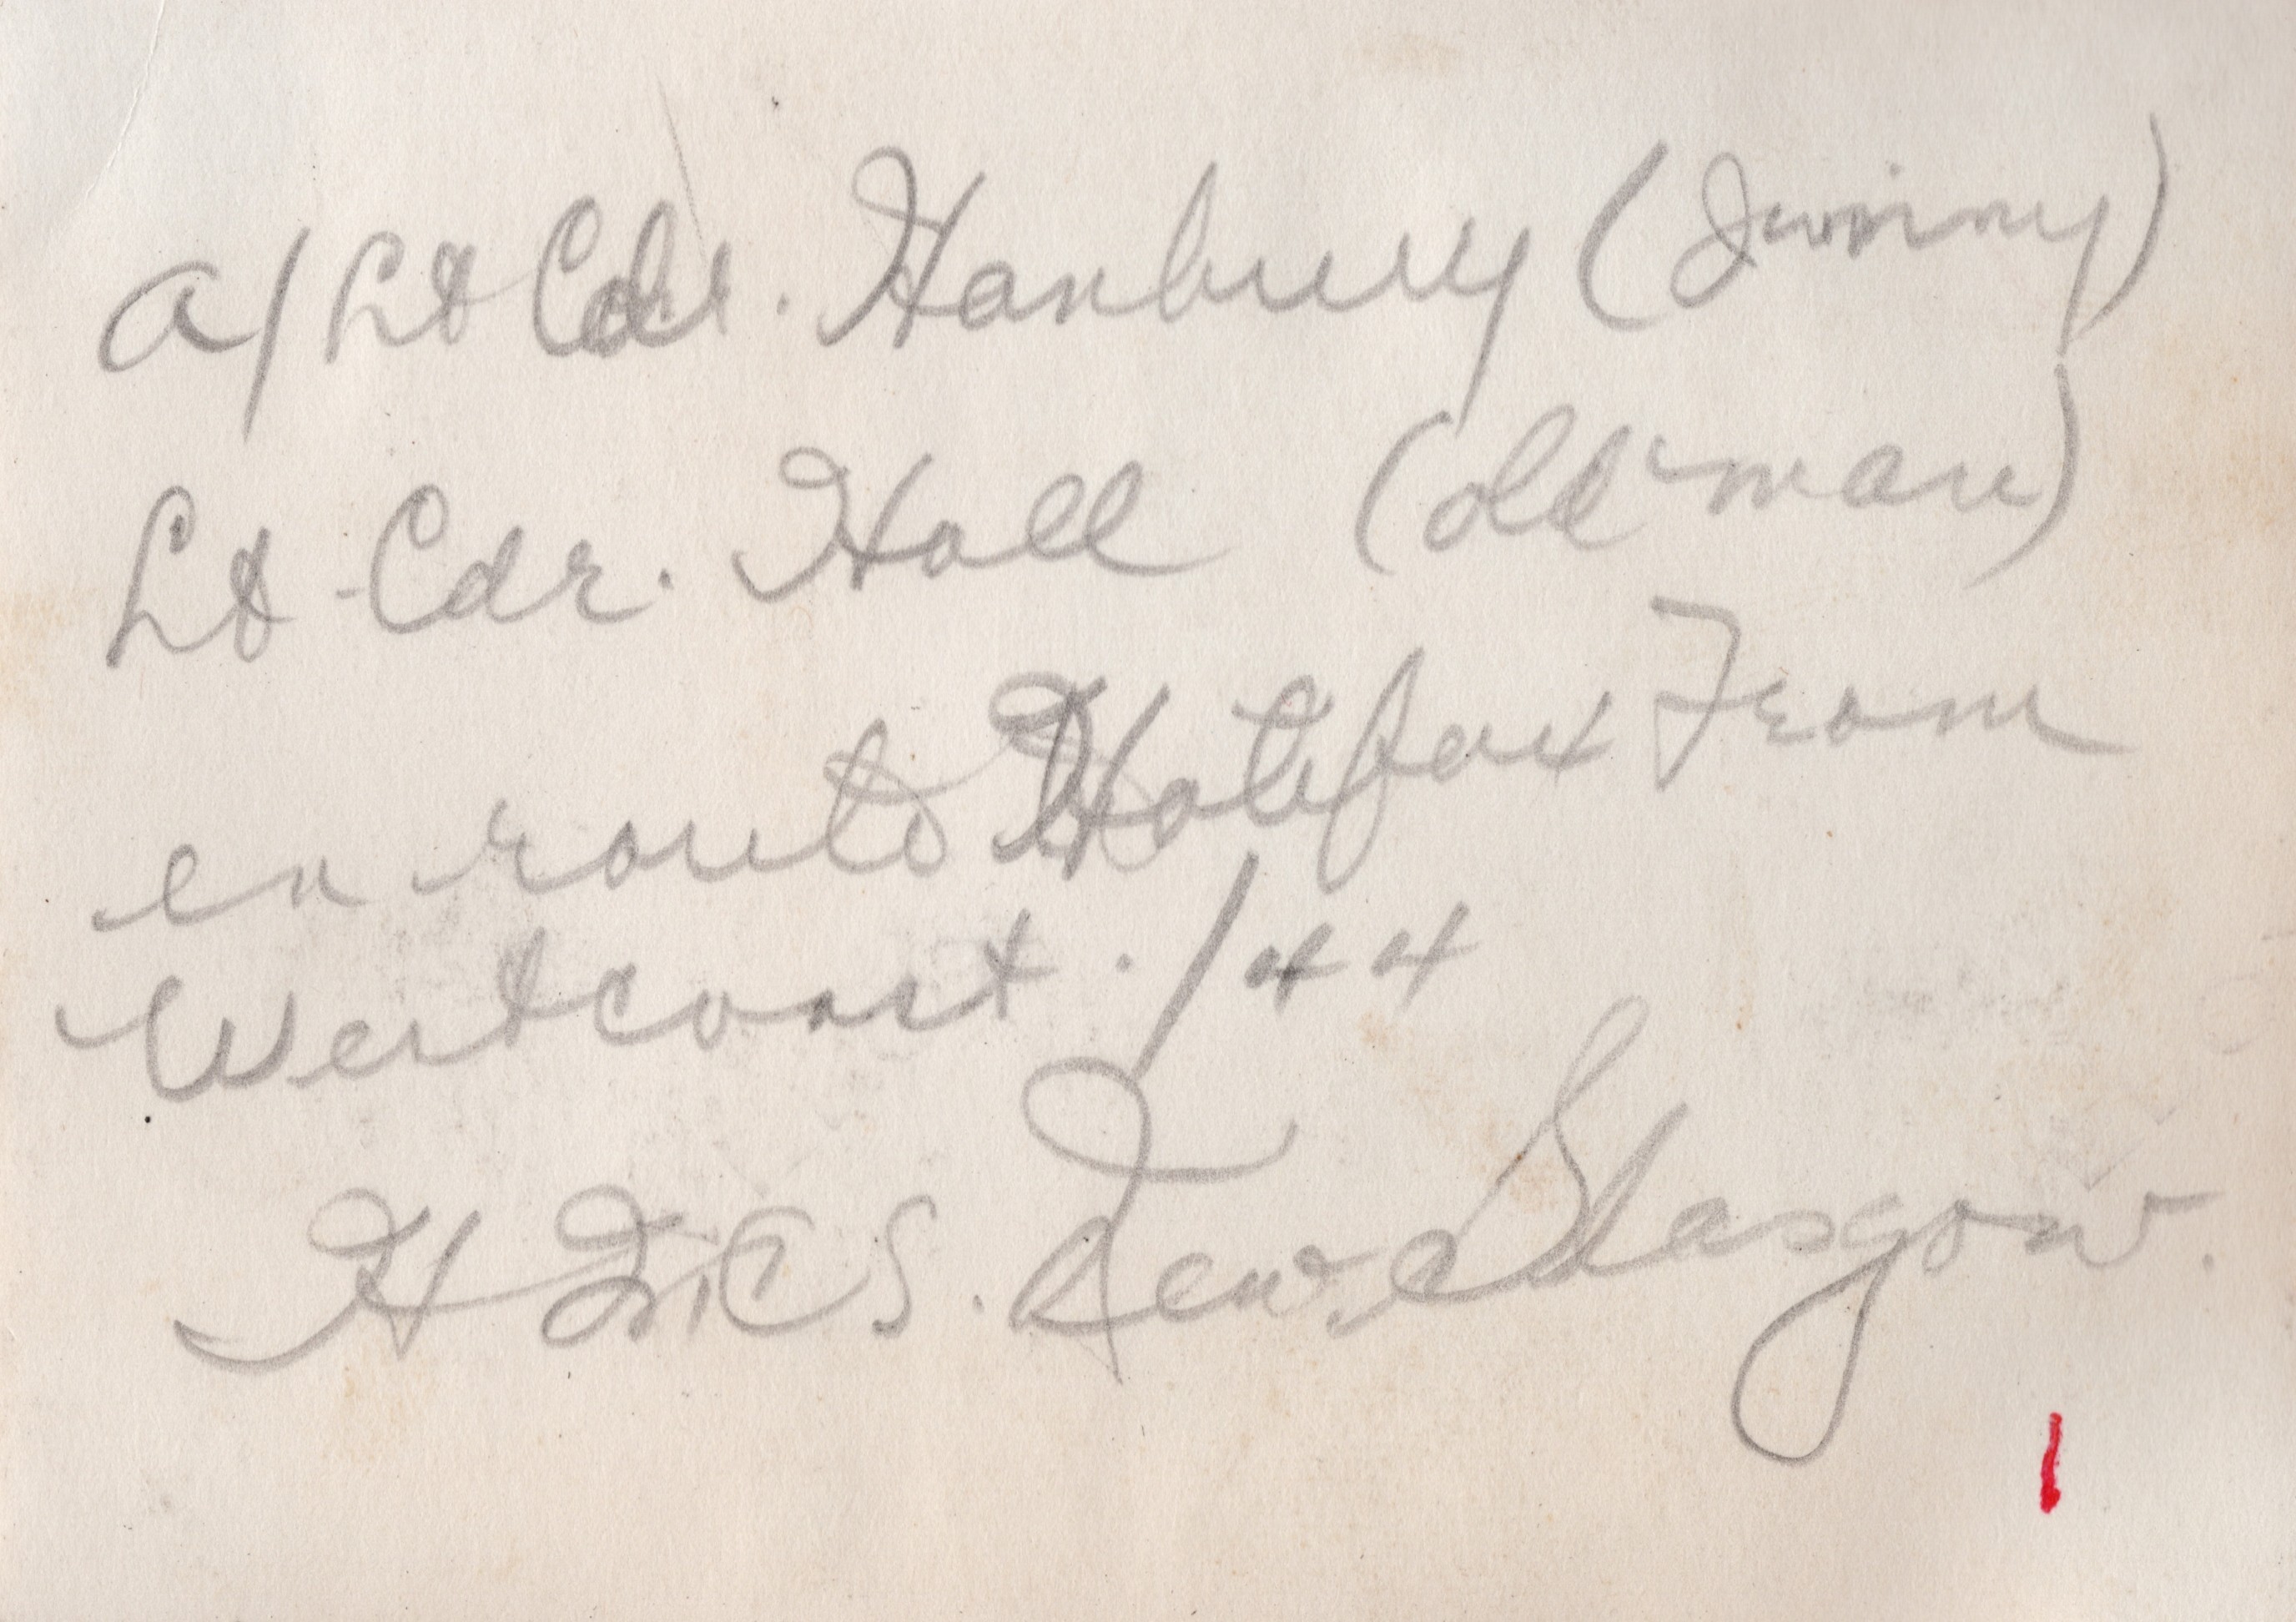 A/Lt Cdr. Hanbury (Jimmy)
Lt-Cdr. Hall (old man)
en route Halifax From
Westcoast. /44
H.M.C.S. New Glasgow.
1